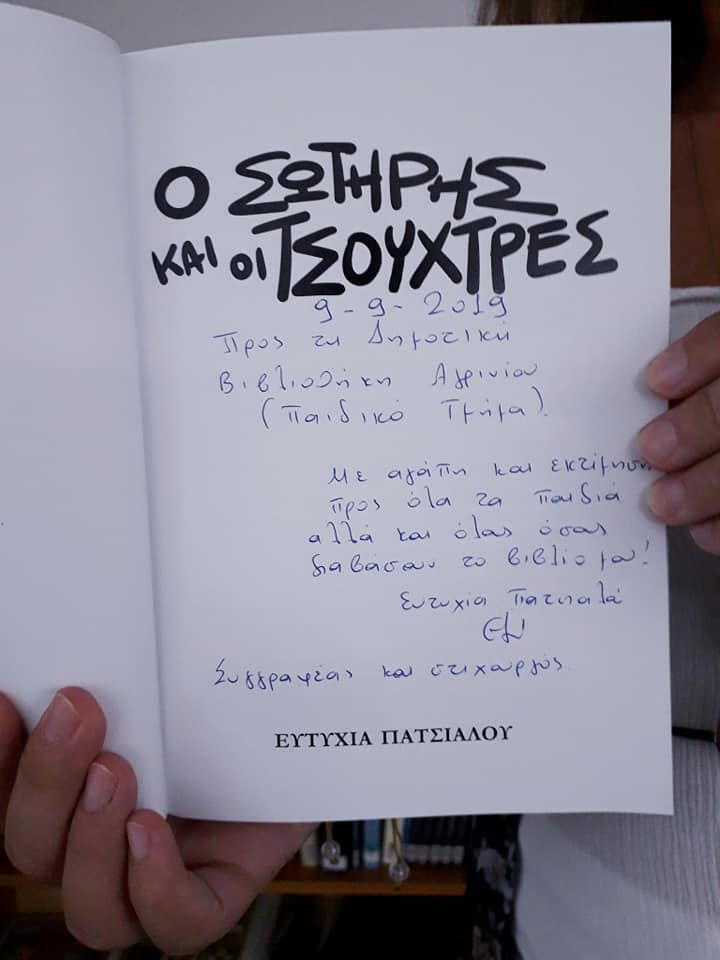 Ο ΣΩΤΗΡΗΣ
ΚΑΙ ΟΙ ΤΣΟΥΧΤΡΕΣ
9-9-2019
Προς τη Δημοτική
Βιβλιοθήκη Αγρινίου
(Παιδικό Τμήμα).
Με αγάπη και εκτίμηση
προς όλα τα παιδιά
αλλά και όλους όσους
διαβάσουν το βιβλίο μου!
Ευτυχία Πατσιαλού
Συγγραφέας και στιχουργός
ΕΥΤΥΧΙΑ ΠΑΤΣΙΑΛΟΥ